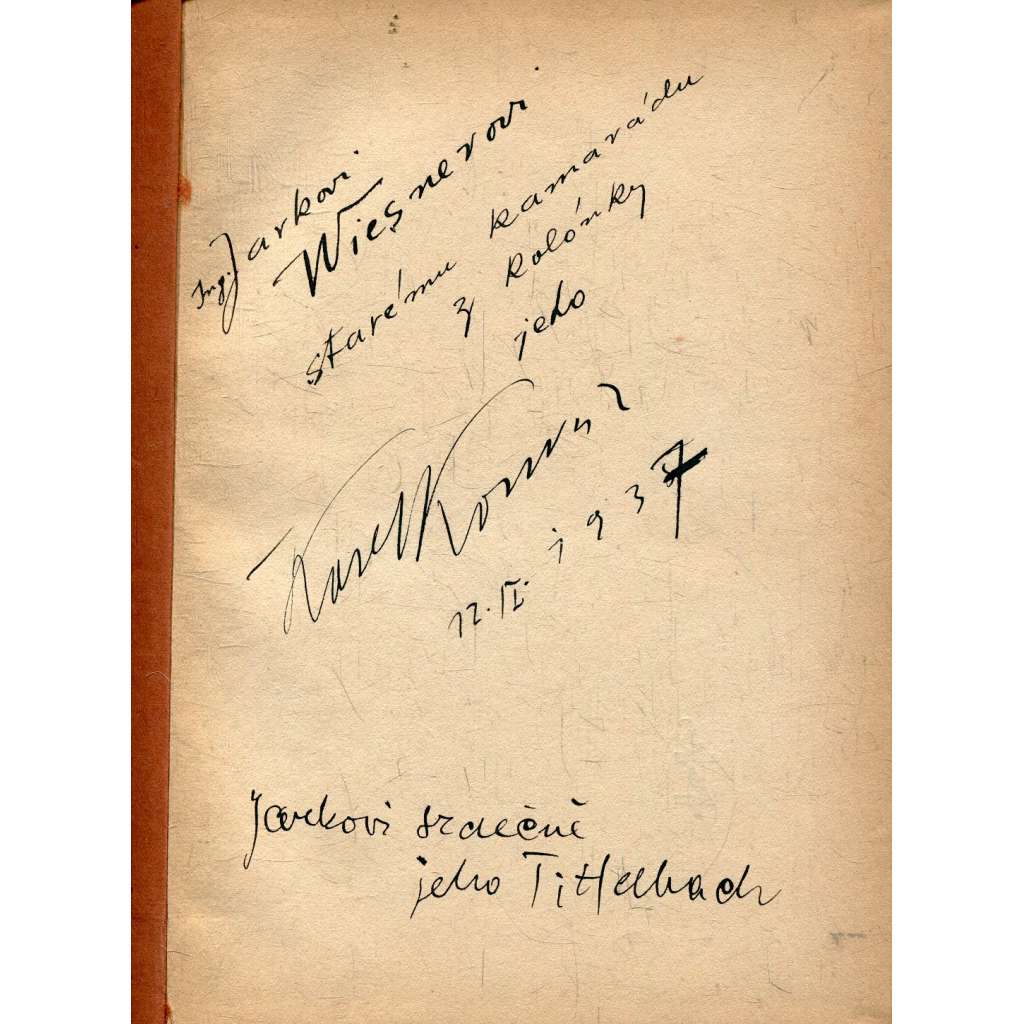 Ing. Jarkovi
Wiesnerovi
starému kamarádu
z kolónky
jeho
Karel Konrád
12.VI. 1937
Jarkovi srdečně
jeho Tittelbach